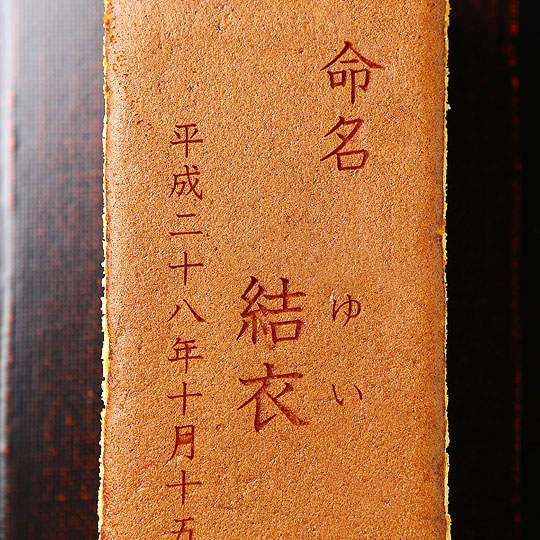 命名
ゆい
結衣
平成二十八年十月十五